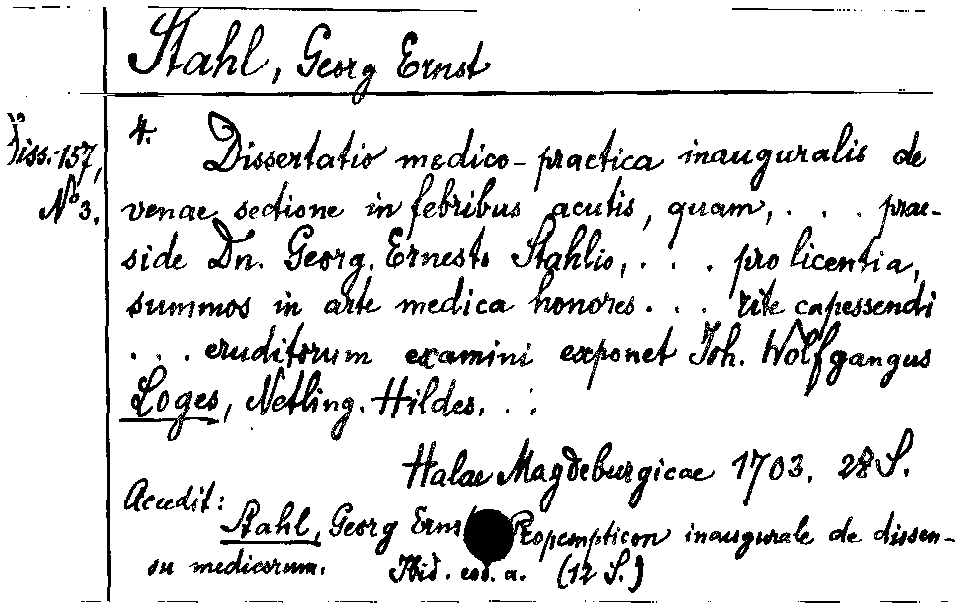 Stahl, Georg Ernst
Diss. 157,
No 3.
4. Dissertatio medico-practica inauguralis de
venae sectione in febribus acutis, quam, . . . prae-
side Dn. Georg. Ernesto Stahlio, . . . pro licentia,
summos in arte medica honores . . . rite capessendi
. . . eruditorum examini exponet Joh. Wolfgangus
Loges, Netling. Hildes. . .
Halae Magdeburgicae 1703. 28 S.
Accedit:
Stahl, Georg Ernst Propempticon inaugurale de dissen-
su medicorum. Ibid. eod. a. (12 S.)